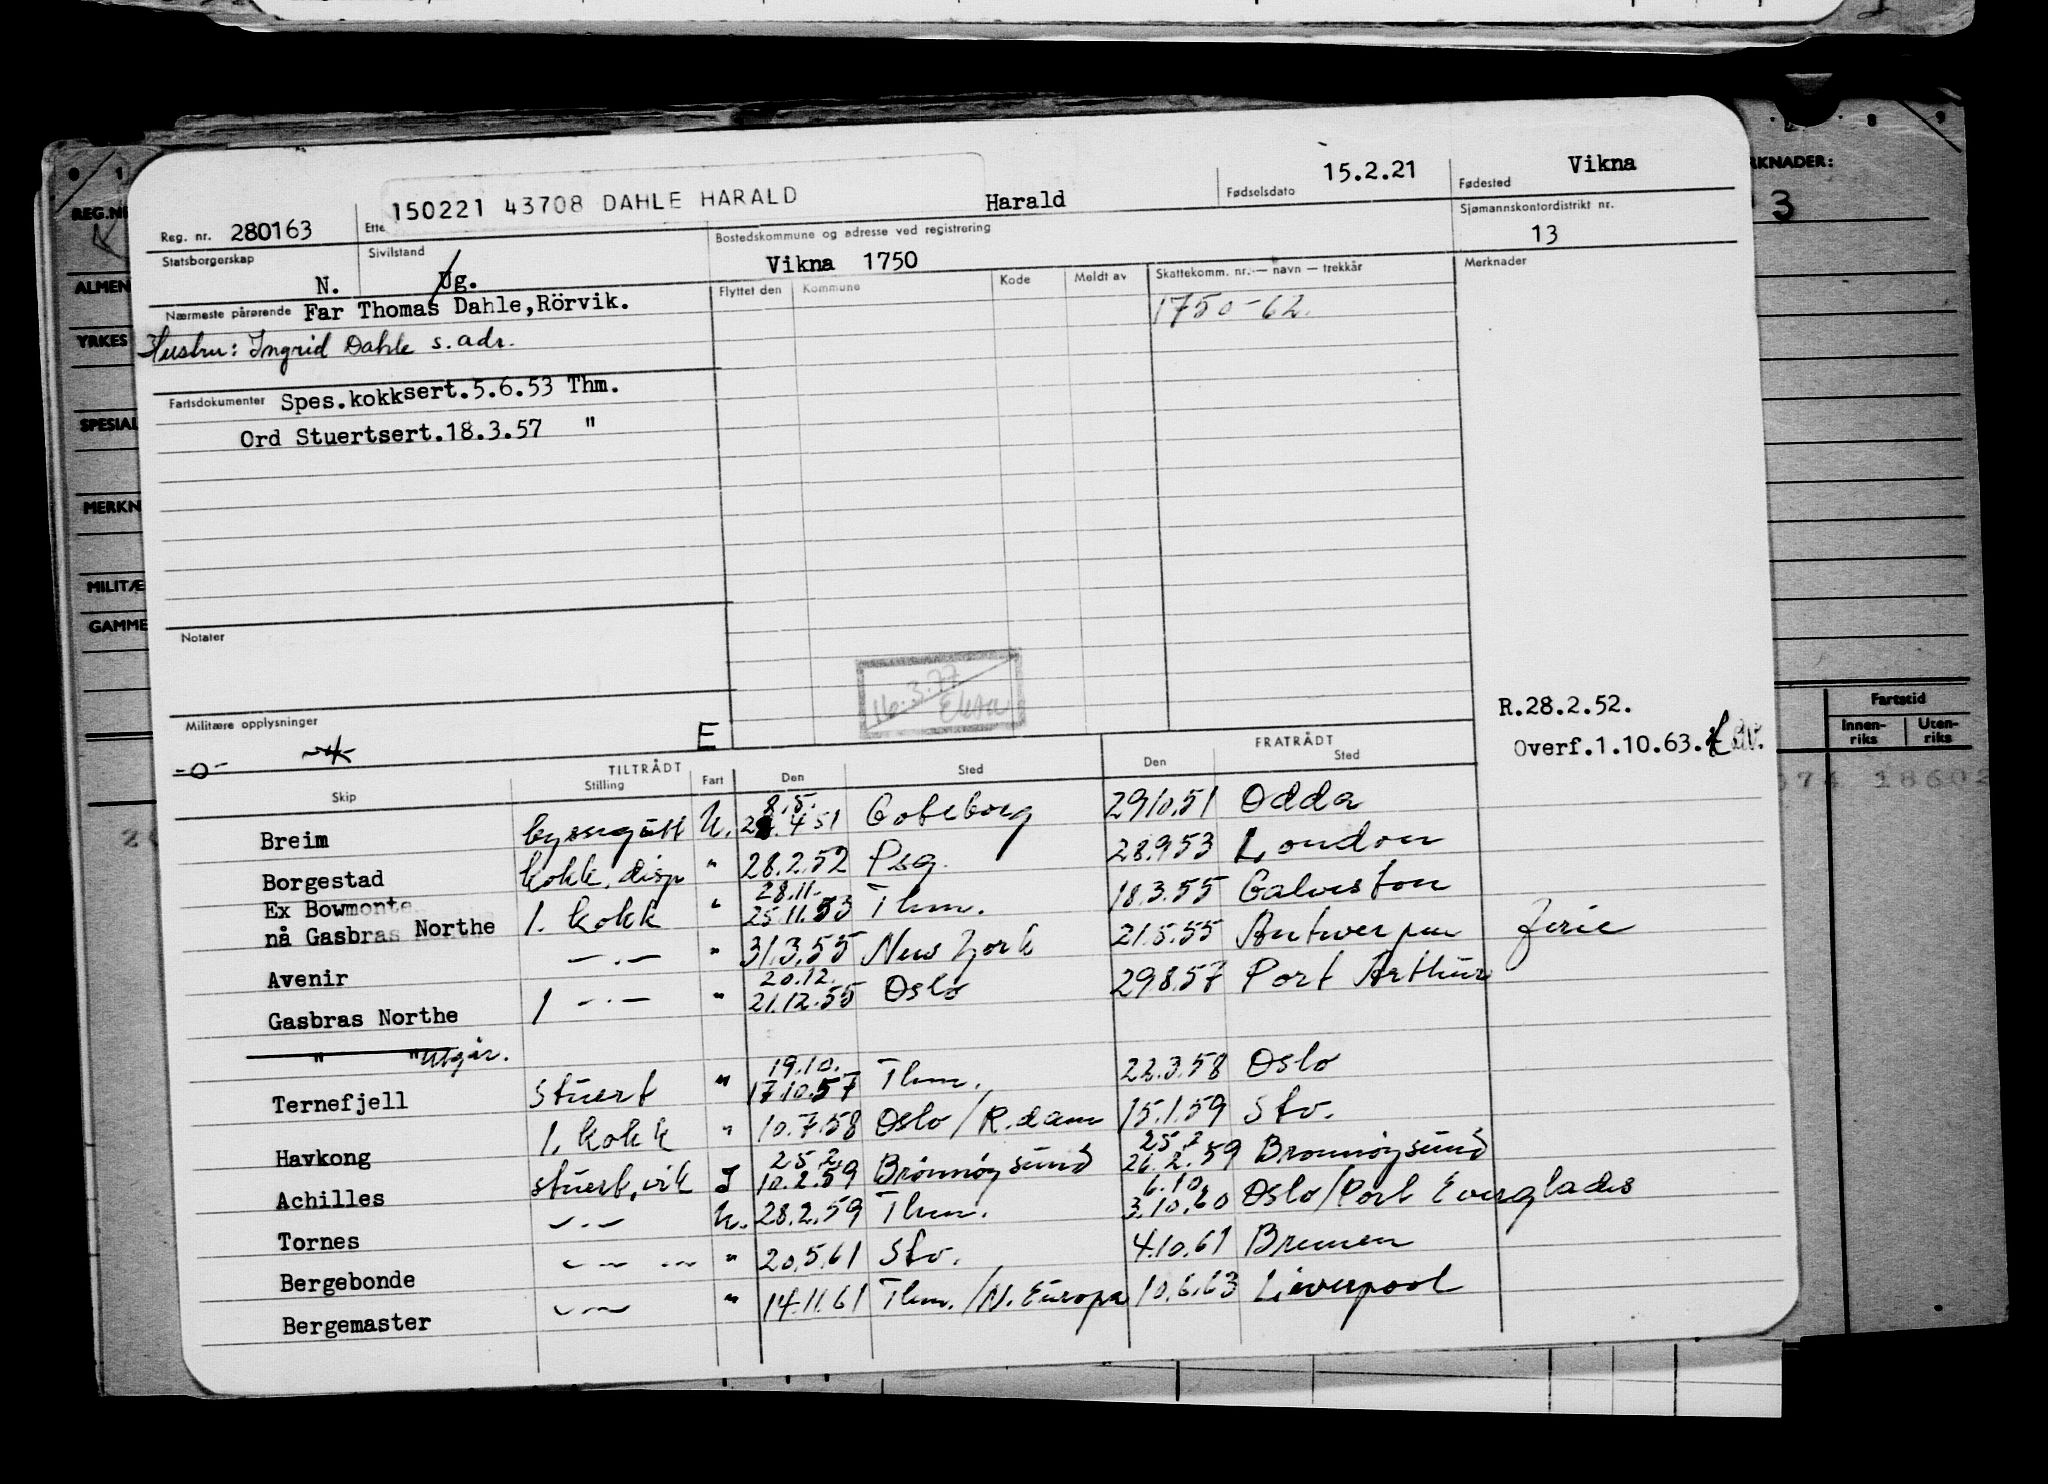 15.2.21 Vikna
150221 43708 DAHLE HARALD Harald Fødselsdato Fødested
Reg. nr. 280163 Ette Bostedskommune og adresse ved registrering Sjømannskontordistrikt nr.
Statsborgerskap Sivilstand 13
N. Ug. Vikna 1750 Merknader
Flyttet den Kommune Kode Meldt av Skattekomm. nr. — navn — trekkår
Nærmeste pårørende Far Thomas Dahle, Rörvik. 1750-62.
Hustru: Ingrid Dahle s. adr.
Fartsdokumenter Spes.kokksert.5.6.53 Thm.
Ord Stuertsert.18.3.57 "
Notater
16.3.77
R.28.2.52.
Militære opplysninger
-0- E Overf.1.10.63.
TILTRÅDT FRATRÅDT
Skip Stilling Fart Den Sted Den Sted
8.5.
Breim byssegutt U. 28.4 51 Goteborg 29.10.51 Odda
Borgestad kokk, disp " 28.2.52 Psg. 28.9.53 London
Ex Bowmonte 28.11.
nå Gasbras Northe 1. kokk " 25.11.53 Thm. 18.3.55 Galveston
Avenir —.— " 31.3.55 New York 21.5.55 Antwerpen ferie
20.12.
Gasbras Northe 1 —.— " 21.12.55 Oslo 29.8.57 Port Arthur
" " Utgår.
19.10.
Ternefjell Stuert " 17.10.57 Thm. 22.3.58 Oslo
Havkong 1. kokk " 10.7.58 Oslo/R.dam 15.1.59 Stv.
25.2. 25.2
Achilles stuert, vik I 10.2.59 Brönnöysund 26.2.59 Bronnöysund
6.10.
Tornes —.— U. 28.2.59 Thm. 3.10.60 Oslo/Port Everglades
Bergebonde —.— " 20.5.61 Stv. 4.10.61 Bremen
Bergemaster —.— " 14.11.61 Thm./N. Europa 10.6.63 Liverpool
REG.NR
ALMEN
YRKES
SPESIAL
MERKN
MILITÆ
GAMME
RKNADER:
3
Fartstid
Innenriks Utenriks